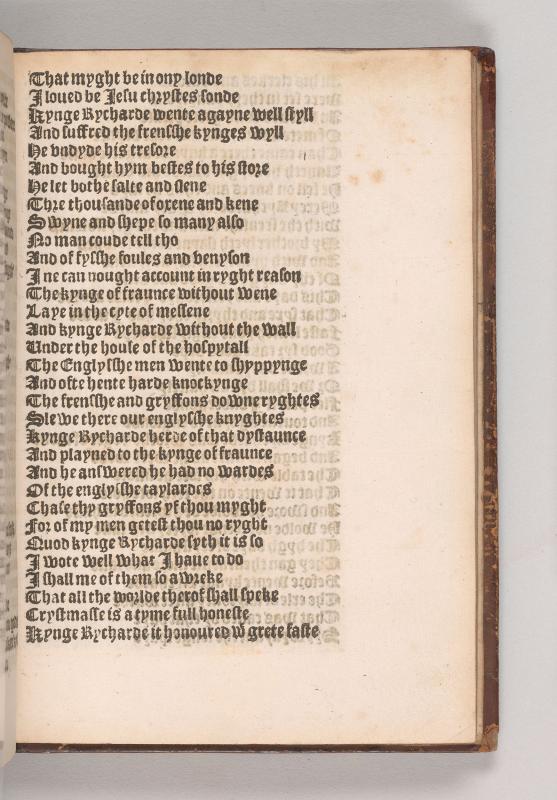 That myght be in ony londe
I loued be Jesu chrystes sonde
Kynge Rycharde wente agayne well styll
And suffred the frensshe kynges wyll
He vndyde his tresore
And bought hym bestes to his store
He let bothe salte and slene
Thre thousande of oxene and kene
Swyne and shepe so many also
No man coude tell tho
And of fysshe foules and venyson
I ne can nought account in ryght reason
The kynge of fraunce without wene
Laye in the cyte of messene
And kynge Rycharde without the wall
Under the house of the hospytall
The Englysshe men wente to shyppynge
And ofte hente harde knockynge
The frensshe and gryffons downe ryghtes
Slewe there our englysshe knyghtes
Kynge Rycharde herde of that dystaunce
And playned to the kynge of fraunce
And he answered he had no wardes
Of the englysshe taylardes
Chase thy gryffons yf thou myght
For of my men getest thou no ryght
Quod kynge Rycharde syth it is so
I wote well what I haue to do
I shall me of them so awreke
That all the worlde therof shall speke
Crystmasse is a tyme full honeste
Kynge Rycharde it honoured w̄ grete faste